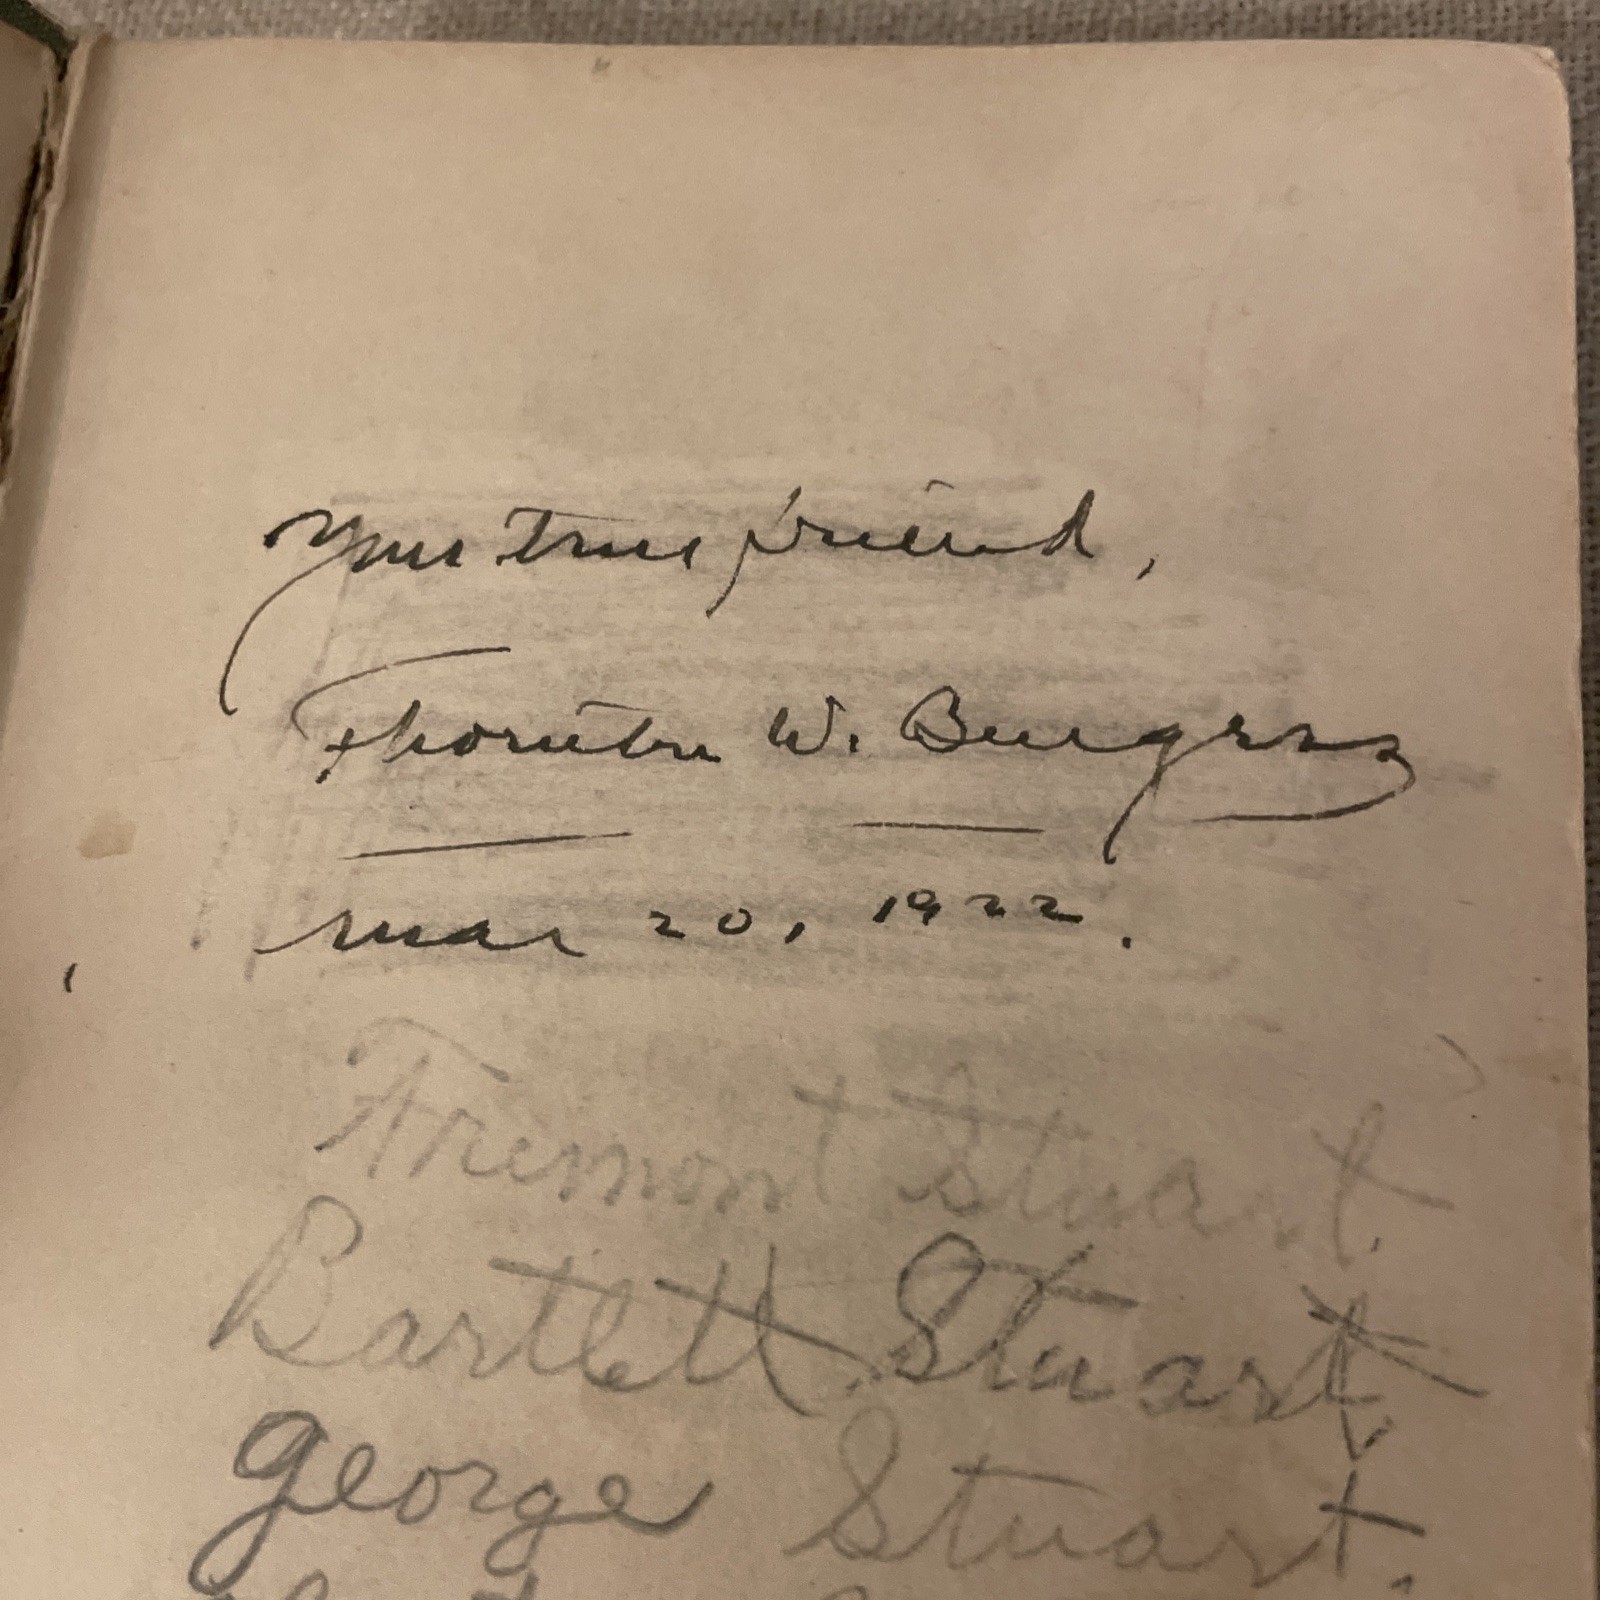 Your true friend,
Thornton W. Burgess
Mar 20, 1922.
Fremont Stuart.
Bartlett Stuart
George Stuart.